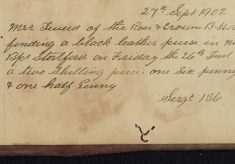 27th Sept 1902
Mrs of the Rose & Crown
finding a black leather purse in
Stortford on Friday the 26th Inst
a two Shilling piece one Six penny
& one half Penny
Sergt 136